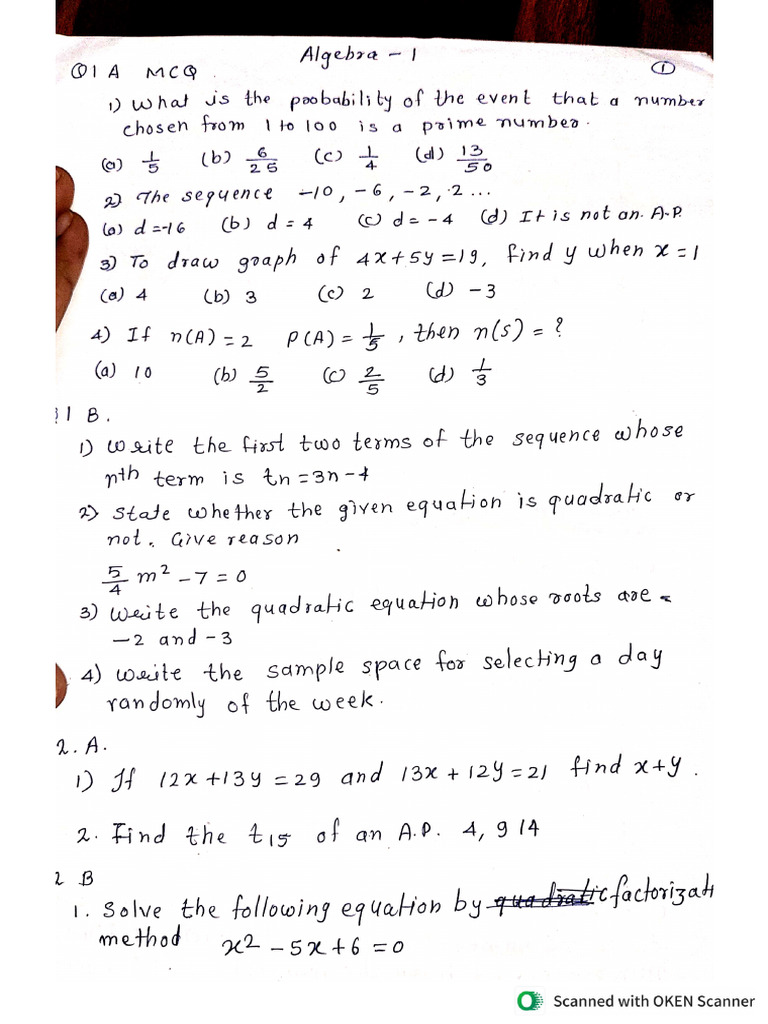 Algebra - 1
Q1 A MCQ ①
1) What is the probability of the event that a number
chosen from 1 to 100 is a prime number.
(a) 1/5 (b) 6/25 (c) 1/4 (d) 13/50
2) The sequence -10, -6, -2, 2 ...
(a) d = -16 (b) d = 4 (c) d = -4 (d) It is not an. A.P.
3) To draw graph of 4x+5y=19, find y when x = 1
(a) 4 (b) 3 (c) 2 (d) -3
4) If n(A) = 2 P(A) = 1/5, then n(s) = ?
(a) 10 (b) 5/2 (c) 2/5 (d) 1/3
1 B.
1) Write the first two terms of the sequence whose
nth term is tn = 3n - 4
2) State whether the given equation is quadratic or
not. Give reason
5/4 m² - 7 = 0
3) Write the quadratic equation whose roots are -
-2 and -3
4) Write the sample space for selecting a day
randomly of the week.
2. A.
1) If 12x + 13y = 29 and 13x + 12y = 21 find x+y.
2. Find the t15 of an A.P. 4, 9 14
2 B
1. Solve the following equation by factorizati
method x² - 5x + 6 = 0
Scanned with OKEN Scanner